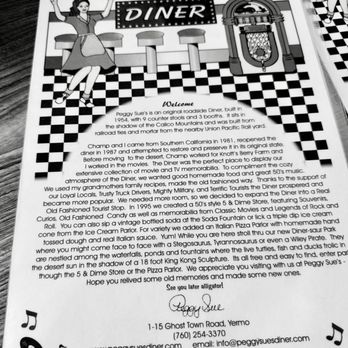 DINER
Welcome
Peggy Sue's is an original roadside Diner, built in
1954, with 9 counter stools and 3 booths. It sits in
the shadow of the Calico Mountains and was built from
railroad ties and mortar from the nearby Union Pacific Rail yard.
Champ and I came from Southern California in 1981, reopened the
diner in 1987 and attempted to restore and preserve it in its original state.
Before moving to the desert, Champ worked for Knott's Berry Farm and
I worked in the movies. The Diner was the perfect place to display our
extensive collection of movie and TV memorabilia. To compliment the cozy
atmosphere of the Diner, we wanted good homemade food and great 50's music.
We used my grandmothers family recipes, made the old fashioned way. Thanks to the support of
our Loyal Locals, Trusty Truck Drivers, Mighty Military, and Terrific Tourists the Diner prospered and
became more popular. We needed more room, so we decided to expand the Diner into a Real
Old Fashioned Tourist Stop. In 1995 we created a 50's style 5 & Dime Store, featuring Souvenirs,
Curios, Old Fashioned Candy as well as memorabilia from Classic Movies and Legends of Rock and
Roll. You can also sip a vintage bottled soda at the Soda Fountain or lick a triple dip ice cream
cone from the Ice Cream Parlor. For variety we added an Italian Pizza Parlor with homemade hand
tossed dough and real Italian sauce. Yum! While you are here stroll thru our new Diner-saur Park
where you might come face to face with a Stegosaurus, Tyrannosaurus or even a Wiley Pirate. They
are nestled among the waterfalls, ponds and fountains where the live turtles, fish and ducks frolic in
the desert sun in the shadow of a 18 foot King Kong Sculpture. Its all free and easy to find, enter
though the 5 & Dime Store or the Pizza Parlor. We appreciate you visiting with us at Peggy Sue's -
Hope you relived some old memories and made some new ones.
See you later alligator!
Peggy Sue
1-15 Ghost Town Road, Yermo
(760) 254-3370
suesdiner.com email: info@peggysuesdiner.com